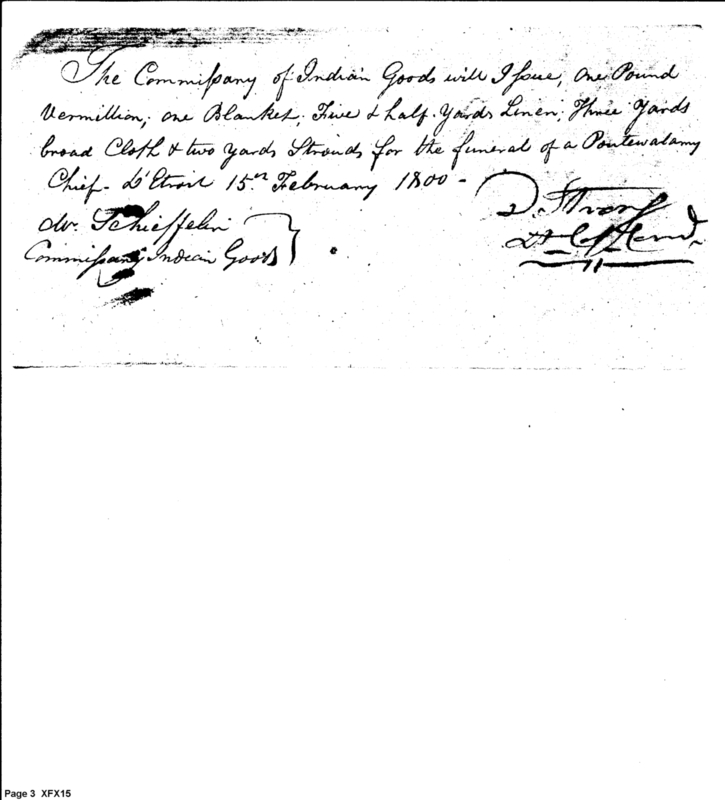 The Commissary of Indian Goods will Issue, one Pound
Vermillion; one Blanket; Five & half Yards Linen; Three Yards
broad Cloth & two Yards Strouds for the funeral of a Poutewatamy
Chief - D'Etroit 15th February 1800 -
D. Strong
Lt Col Comd.
Mr. Schieffelin
Commissary Indian Goods
Page 3 XFX15